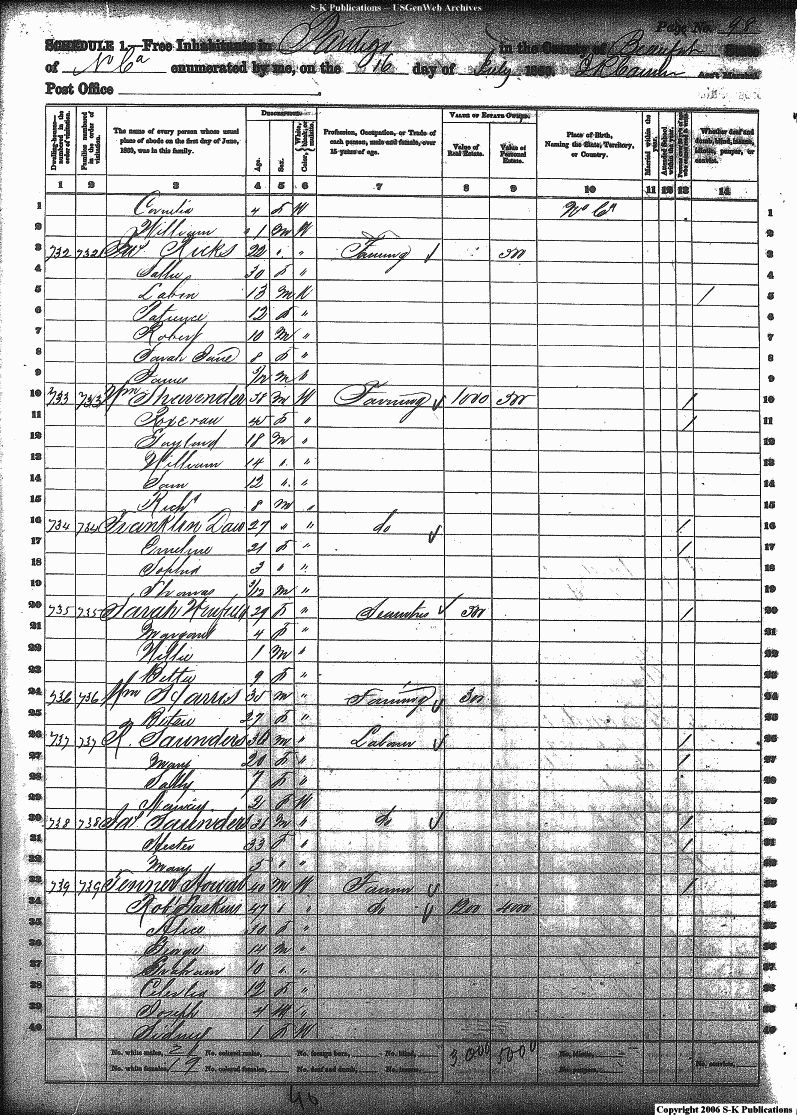 S-K Publications – USGenWeb Archives
Page No. 48
SCHEDULE 1.—Free Inhabitants in Pantego in the County of Beaufort State
of No Ca enumerated by me, on the 16 day of July 1860. Ass't Marshal
Post Office
Dwelling-houses—numbered in the order of visitation.
Families numbered in the order of visitation.
The name of every person whose usual place of abode on the first day of June, 1860, was in this family.
Description.
Age.
Sex.
Color, White, black, or mulatto.
Profession, Occupation, or Trade of each person, male and female, over 15 years of age.
Value of Estate Owned.
Value of Real Estate.
Value of Personal Estate.
Place of Birth, Naming the State, Territory, or Country.
Married within the year.
Attended School within the year.
Persons over 20 y'rs of age who cannot read & write.
Whether deaf and dumb, blind, insane, idiotic, pauper, or convict.
1 2 3 4 5 6 7 8 9 10 11 12 13 14
1 Cornelia 4 F W No Ca 1
2 William 1 M W 2
3 732 732 Ricks 22 " " Farming 300 3
4 Sallie 30 F " 4
5 Laben 13 M 5
6 Patience 12 F " 6
7 Robert 10 M " 7
8 Sarah Jane 8 F " 8
9 James M 9
10 733 733 Wm Shavender 38 M W Farming 1000 300 / 10
11 45 F " / 11
12 18 M " 12
13 William 14 " " 13
14 Sam 12 " " 14
15 Richd 8 M " 15
16 734 734 Franklin Daw 27 " " do / 16
17 Emeline 21 F " / 17
18 3 " " 18
19 Thomas 3/12 M " 19
20 735 735 Sarah 29 F " 300 / 20
21 Margaret 4 F " 21
22 Willie 1 M " 22
23 Bettie 9 F " 23
24 736 736 Wm Harris 35 M " Farming 300 24
25 Betsy 27 F " 25
26 737 737 R. Saunders 36 M " Laborer / 26
27 Mary 28 F " / 27
28 Sally 7 F " 28
29 2 F W 29
30 738 738 Saunders 31 M " do / 30
31 Hester 33 F " / 31
32 Mary 5 " " 32
33 739 739 40 M W Farmer / 33
34 Robt Gaskins 47 " " do 1200 4000 34
35 Alice 30 F " 35
36 George 14 M " 36
37 10 " " 37
38 Celestia 12 F " 38
39 Joseph 4 M " 39
40 Sidney 1 F W 40
No. white males, 21 No. colored males, No. foreign born, No. blind, 3,000 5000 No. idiotic,
No. white females, 19 No. colored females, No. deaf and dumb, No. insane, No. paupers, No. convicts,
40
Copyright 2006 S-K Publications